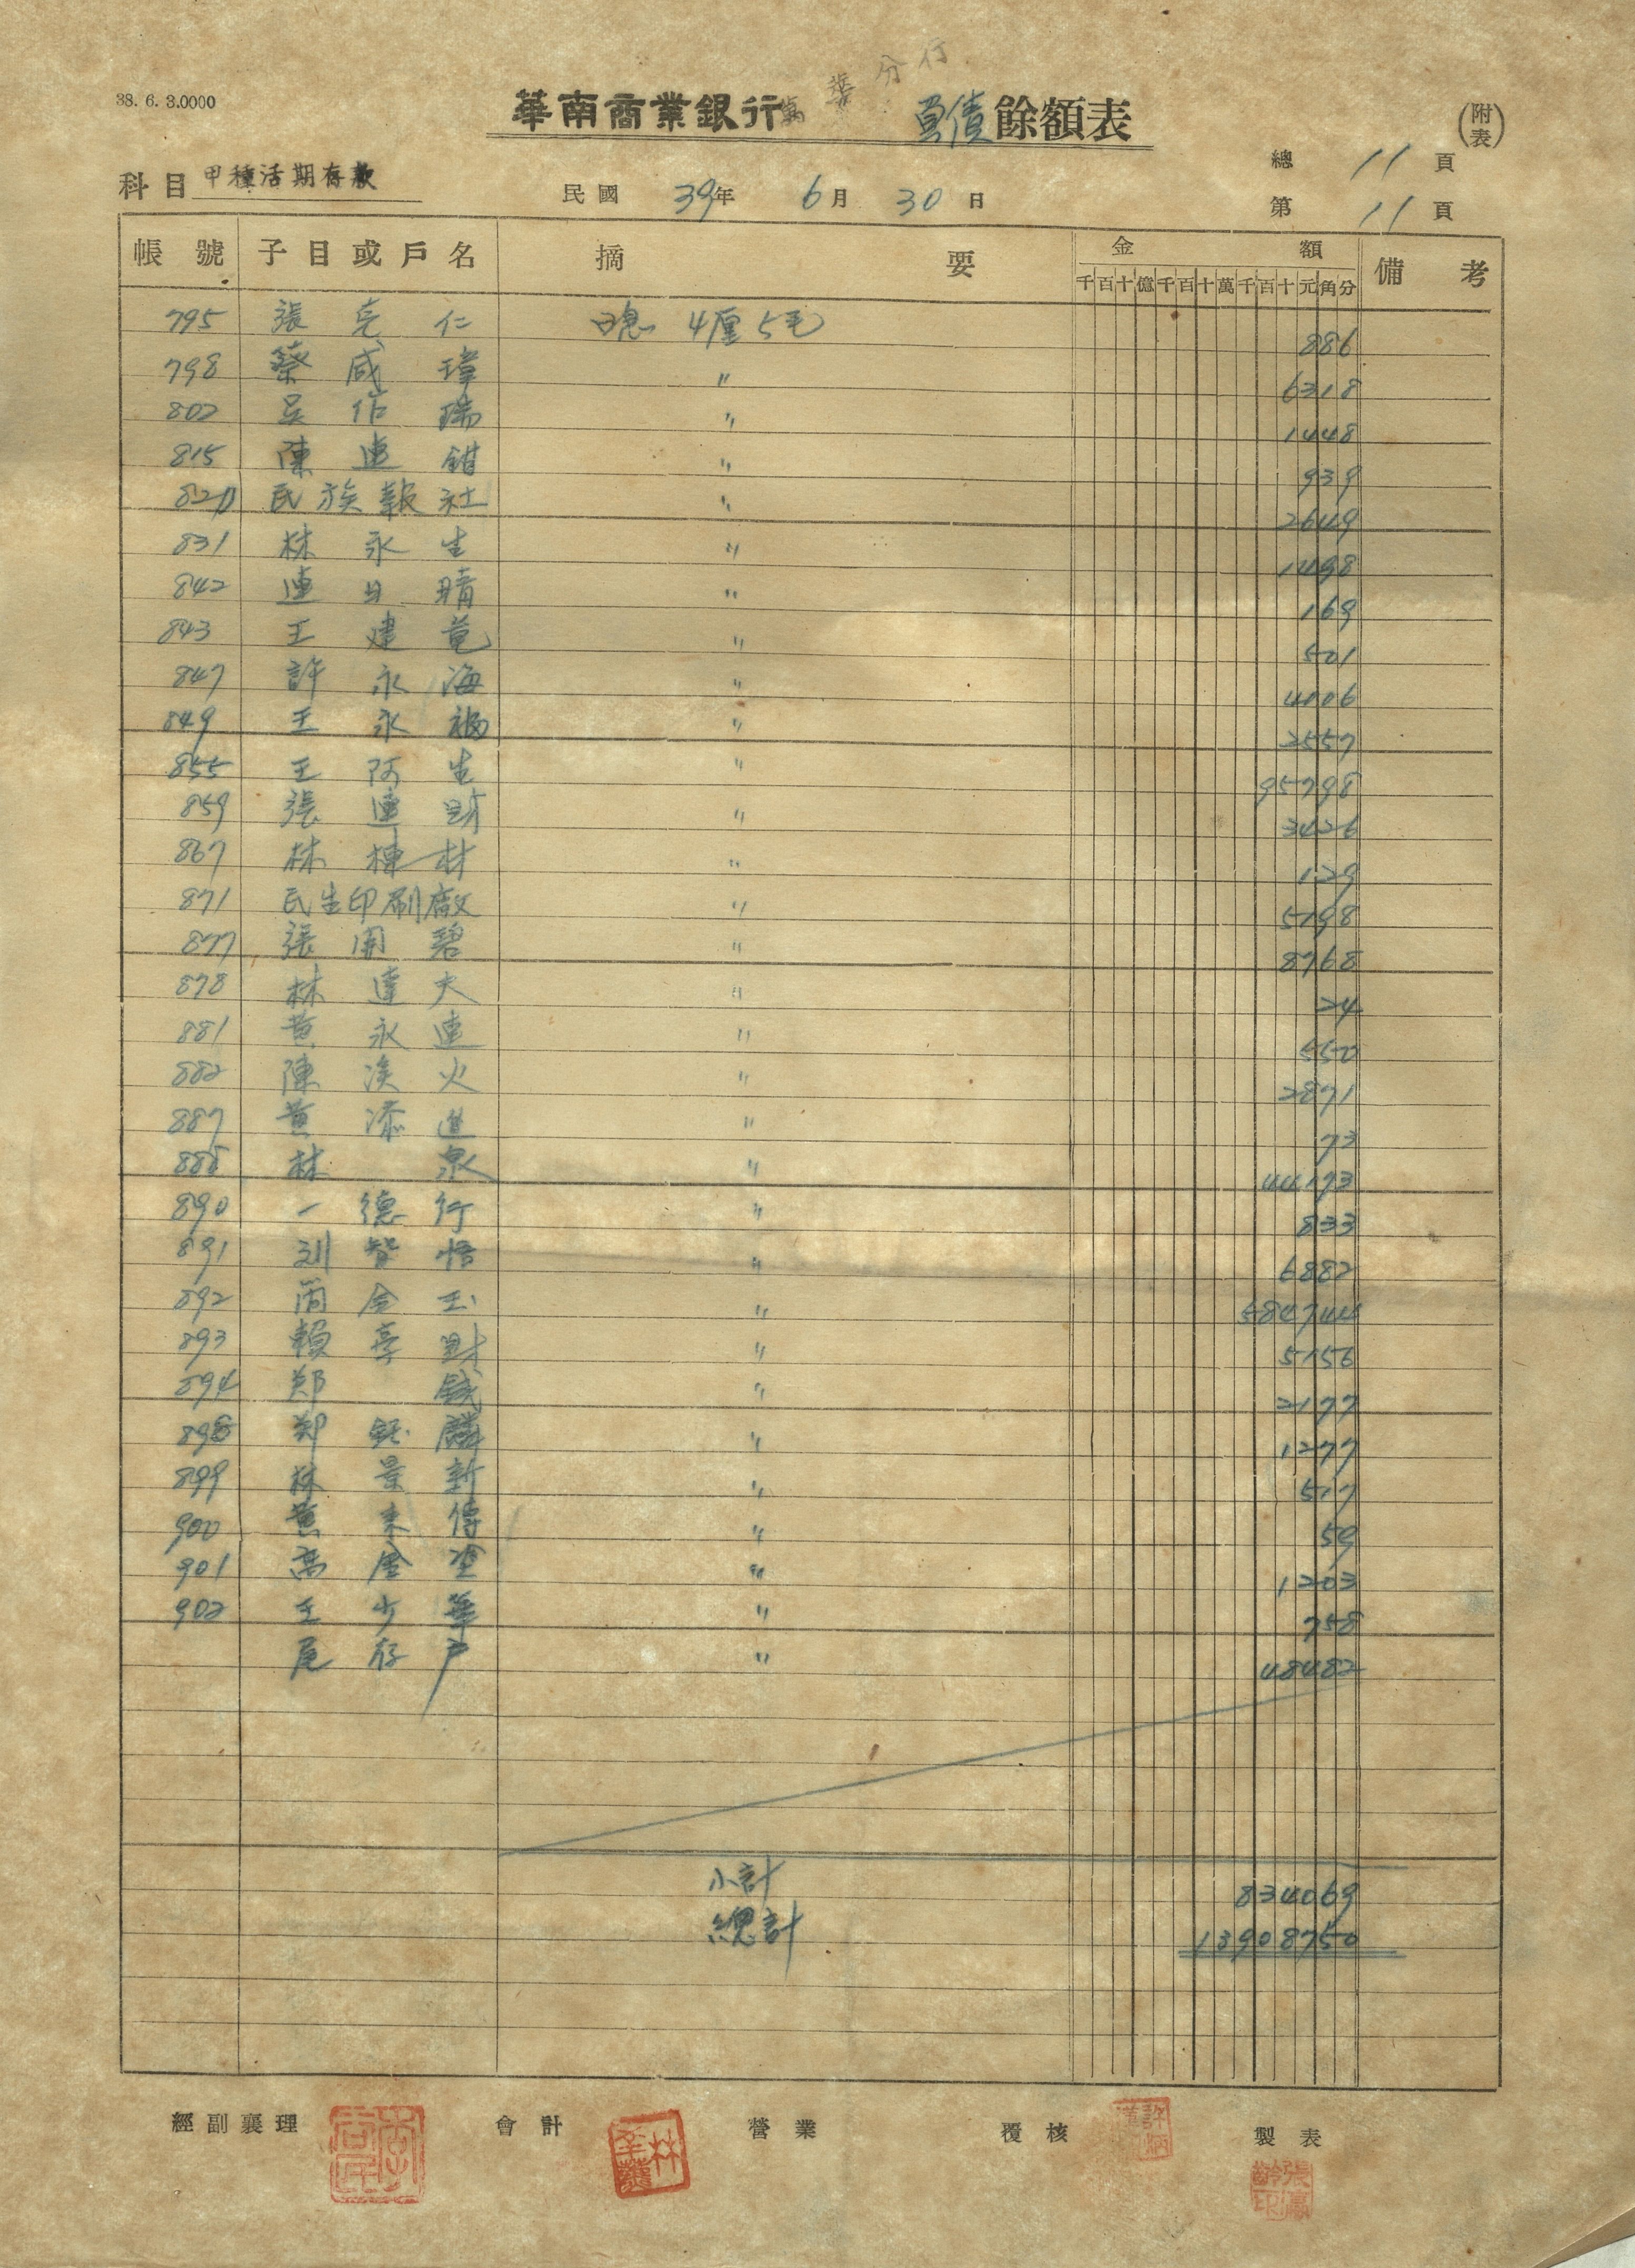 38. 6. 3.0000
華南商業銀行萬華分行 負債餘額表 (附表)
總 11 頁
科目 甲種活期存款 民國 39年 6月 30日
第 11 頁
帳號 子目或戶名 摘要 金額 備考
千百十億千百十萬千百十元角分
795 張克仁 日息 4厘5毛 886
798 蔡咸瑋 〃 6318
802 吳作瑞 〃 1448
815 陳連錯 〃 939
820 民族報社 〃 2649
831 林永生 〃 1498
842 連日晴 〃 169
843 王建 〃 501
847 許永海 〃 4006
849 王永福 〃 2557
855 王阿生 〃 95798
859 張連財 〃 3426
867 林棟材 〃 129
871 民生印刷廠 〃 5198
877 張開碧 〃 8768
878 林達夫 〃 24
881 黃永連 〃 550
882 陳溪火 〃 2871
887 黃添進 〃 73
888 林泉 〃 44193
890 一德行 〃 833
891 智悟 〃 6882
892 簡金玉 〃 584744
893 賴亭財 〃 5156
894 鄭錢 〃 2177
898 鄭鈺麟 〃 1277
899 林景新 〃 517
900 黃來傳 〃 59
901 高金塗 〃 1203
902 王少華 〃 758
尾存戶 〃 48482
小計 834069
總計 13908750
經副襄理 會計 營業 覆核 製表